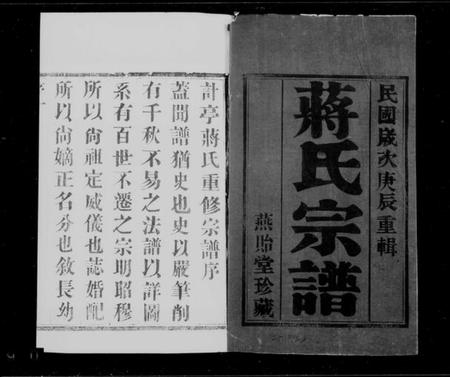 民國歲次庚辰重輯
蔣氏宗譜
燕貽堂珍藏
計亭蔣氏重修宗譜序
蓋聞譜猶史也史以嚴筆削
右千秋不易之法譜以詳圖
系有百世不遷之宗明昭穆
所以尙祖定威儀也誌婚配
所以尙嫡正名分也敘長幼